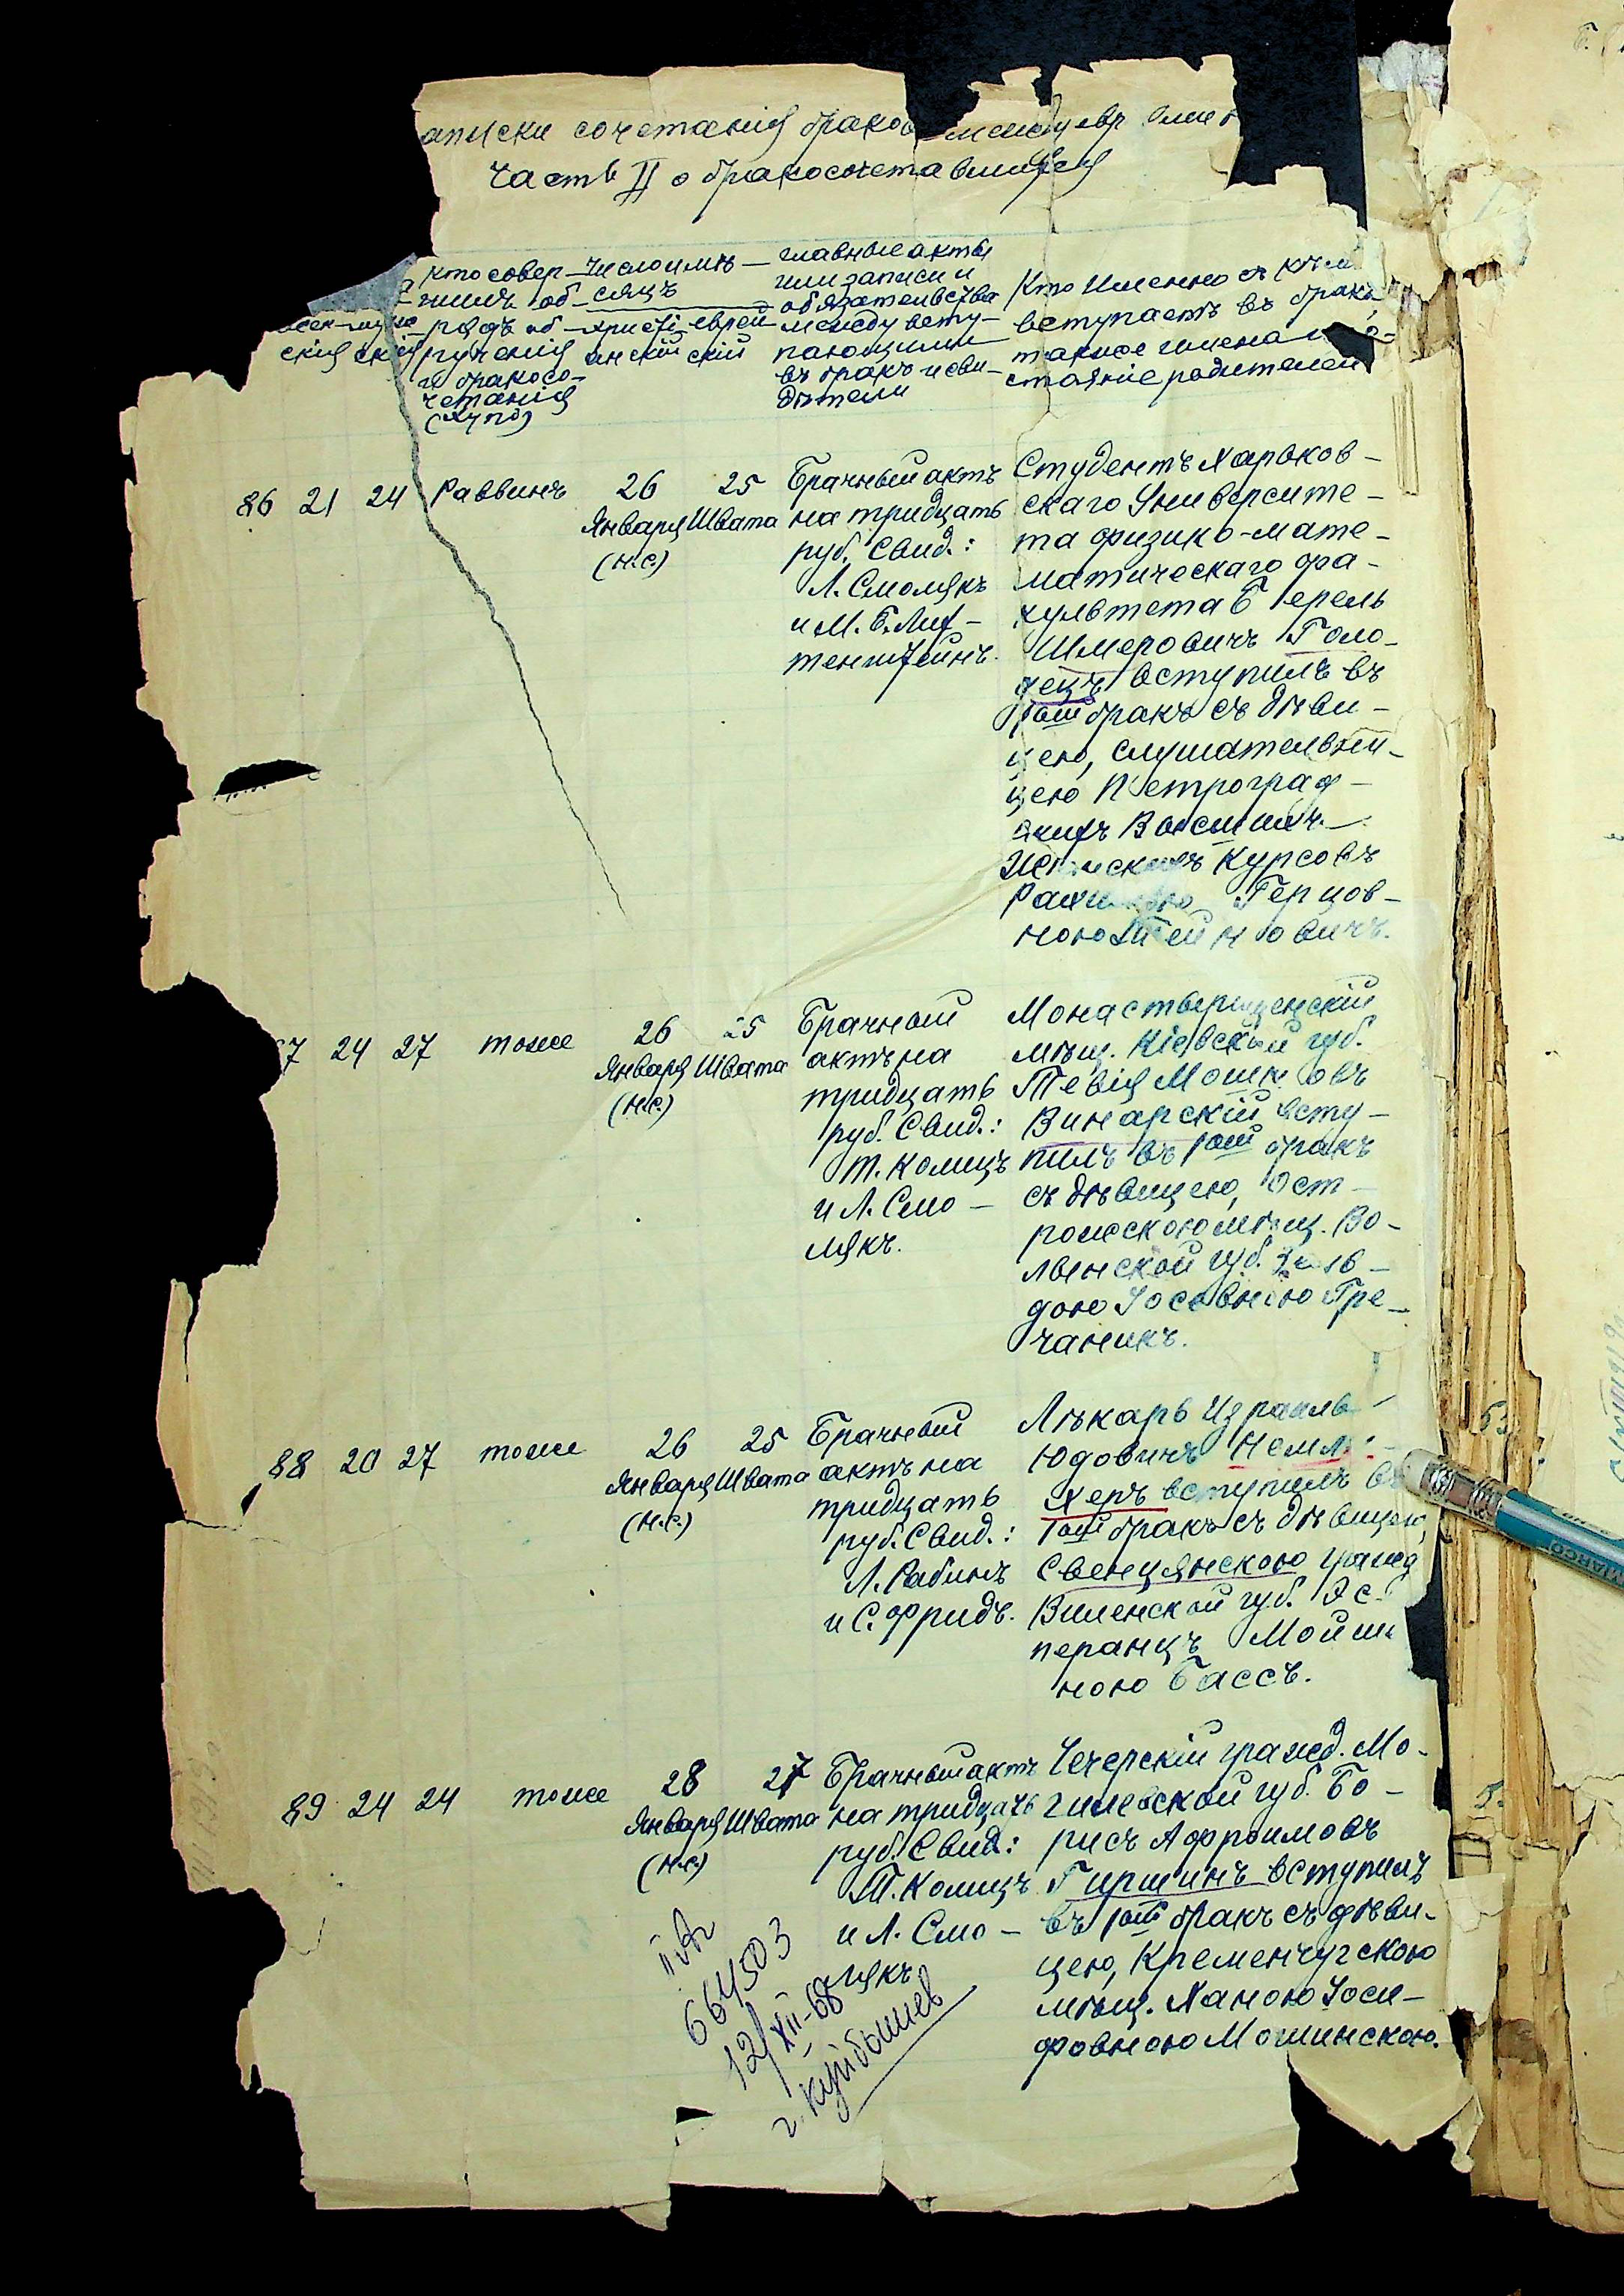 аписки сочетанія браков между евр
Часть II о бракосочетавшихся
кто совер-
шилъ об-
рядъ об-
рученія
и бракосо-
четанія
(хупо)
женскій
мужской
Число и мѣ-
сяцъ
христі-
анскій
еврей-
скій
главные акты
или записи и
обязательства
между всту-
пающими
въ бракъ и сви-
дѣтели
Кто именно съ кѣм
вступаетъ въ бракъ,
также имена и
стояніе родителей
86 21 24 Раввинъ
26 25
Января Швата
(н.с.)
Брачный актъ
на тридцать
руб. Свид.:
Л. Смолякъ
и М. Б. Лих-
тенштейнъ.
Студентъ Харьков-
скаго Университе-
та физико-мате-
матическаго фа-
культета Берель
Шмеровичъ Голо-
децъ вступилъ въ
1ый бракъ съ дѣви-
цею, слушательни-
цею Петроград-
скихъ Высшихъ
Женскихъ Курсовъ
Герцов-
ною Штейновичъ.
7 24 27 тоже
26 25
Января Швата
(н.с.)
Брачный
актъ на
тридцать
руб. Свид.:
Т. Колицъ
и Л. Смо-
лякъ.
Монастырищенскій
мѣщ. Кіевской губ.
Тевія Мошковъ
Винарскій всту-
пилъ въ 1ый бракъ
съ дѣвицею, Ост-
рожскою мѣщ. Во-
лынской губ.
дою Іосевною Гре-
чаникъ.
88 20 27 тоже
26 25
Января Швата
(н.с.)
Брачный
актъ на
тридцать
руб. Свид.:
Л. Рабинъ
и С. Фридъ.
Лѣкарь Израиль
Юдовичъ Немли-
херъ вступилъ въ
1ый бракъ съ дѣвицею,
Свенцянскою гражд
Виленской губ. Эс-
перанцъ Мойше
ною Бассъ.
89 24 24 тоже
28 27
Января Швата
(н.с.)
Брачный актъ
на тридцать
руб. Свид.:
Т. Колицъ
и Л. Смо-
лякъ
Чечерскій гражд. Мо-
гилевской губ. Бо-
рисъ Афроимовъ
Гиршинъ вступилъ
въ 1ый бракъ съ дѣви-
цею, Кременчугскою
мѣщ. Ханою Іоси-
фовною Мошинскою.
664503
12/XII-68
г. Куйбышев
MARCO